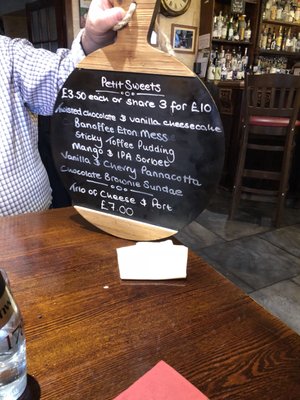 Petit Sweets
£3.50 each or share 3 for £10
Twisted chocolate & vanilla cheesecake
Banoffee Eton Mess
Sticky Toffee Pudding
Mango & IPA Sorbet
Vanilla & Cherry Pannacotta
Chocolate Brownie Sundae
Trio of Cheese & Port
£7.00